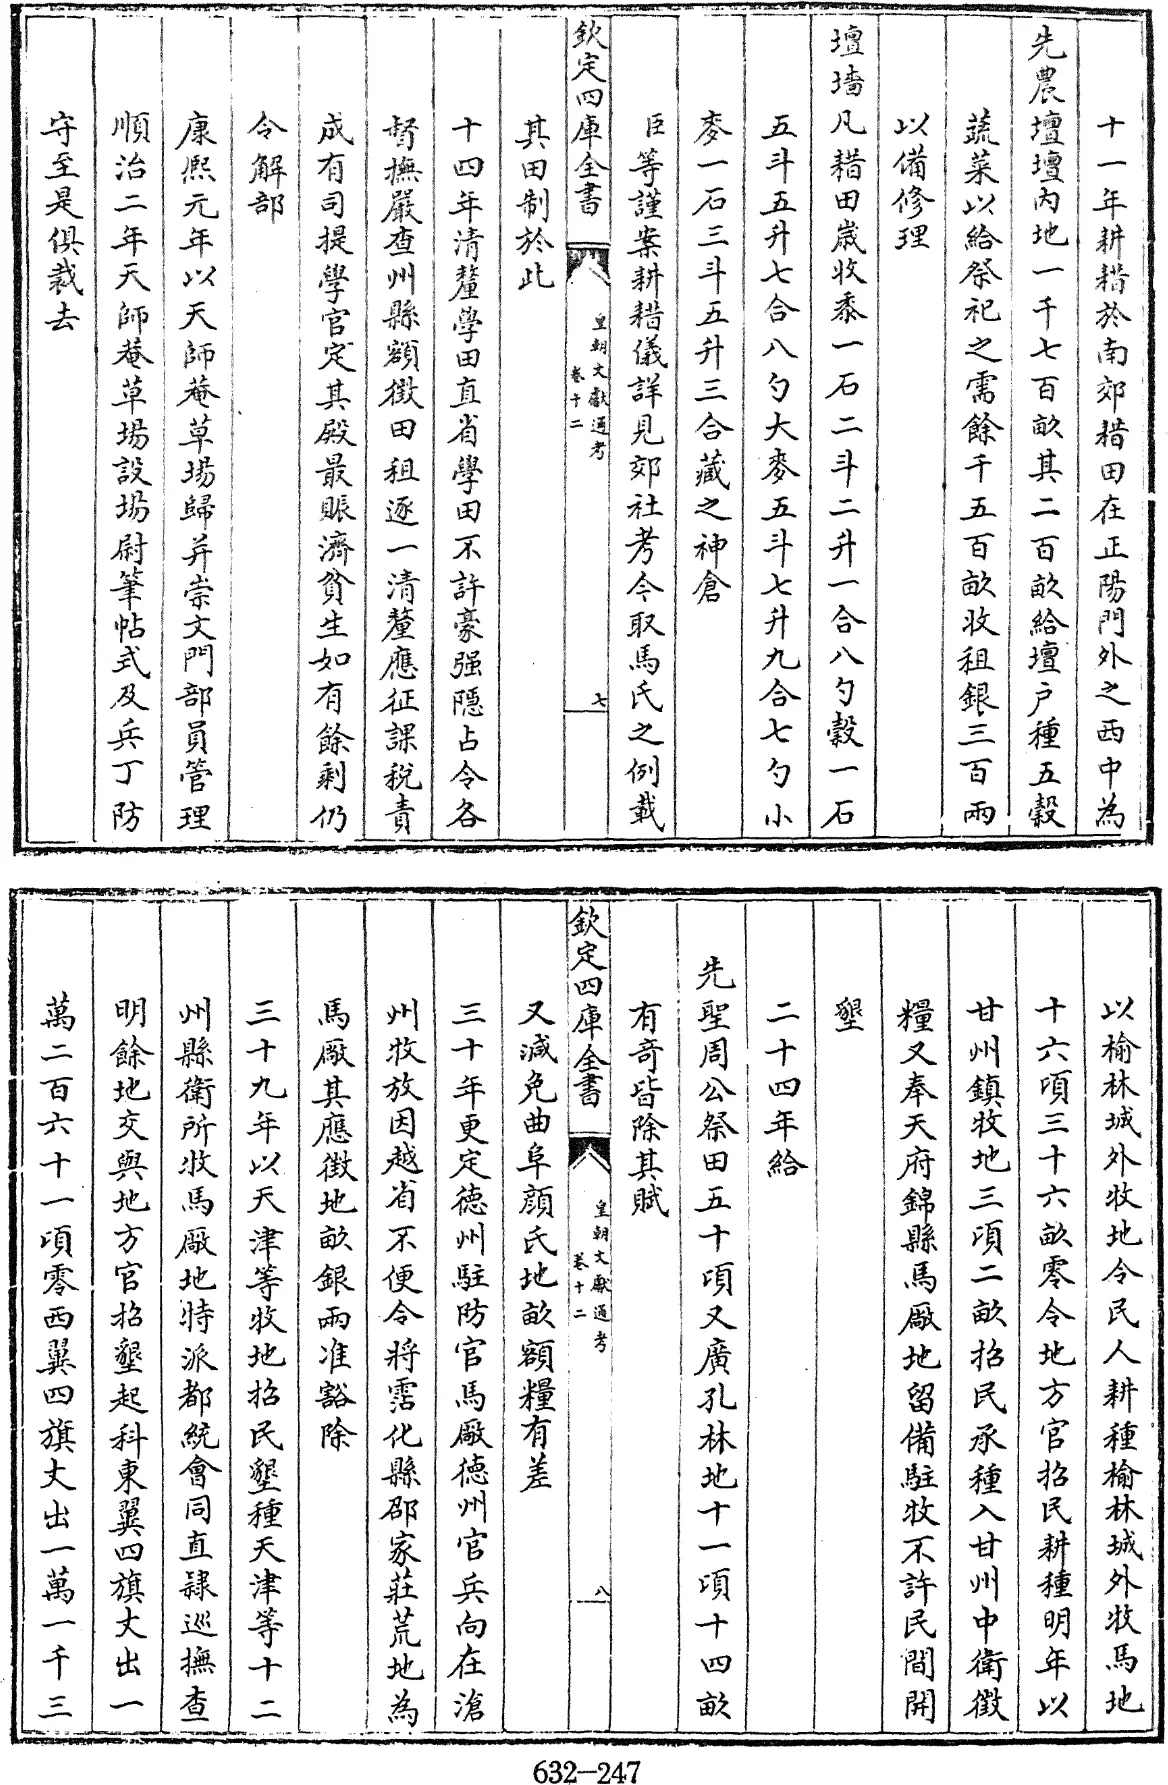 十一年耕耤於南郊耤田在正陽門外之西中為
先農壇壇内地一千七百畝其二百畝給壇户種五穀
蔬菜以給祭祀之需餘千五百畝收租銀三百兩
以備修理
壇墻凡耤田嵗收黍一石二斗二升一合八勺穀一石
五斗五升七合八勺大麥五斗七升九合七勺小
麥一石三斗五升三合藏之神倉
臣等謹案耕耤儀詳見郊社考今取馬氏之例載
欽定四庫全書
皇朝文獻通考
卷十二
七
其田制於此
十四年清釐學田直省學田不許豪强隱占令各
督撫嚴查州縣額徵田租逐一清釐應征課税責
成有司提學官定其殿最賑濟貧生如有餘剩仍
令解部
康熙元年以天師菴草場歸并崇文門部員管理
順治二年天師菴草場設場尉筆帖式及兵丁防
守至是俱裁去
以榆林城外牧地令民人耕種榆林城外牧馬地
十六頃三十六畝零令地方官招民耕種明年以
甘州鎮牧地三頃二畝招民承種入甘州中衛徵
糧又奉天府錦縣馬厰地留備駐牧不許民間開
墾
二十四年給
先聖周公祭田五十頃又廣孔林地十一頃十四畝
有奇皆除其賦
欽定四庫全書
皇朝文獻通考
卷十二
八
又減免曲阜顔氏地畝額糧有差
三十年更定德州駐防官馬厰德州官兵向在滄
州牧放因越省不便令將霑化縣邵家莊荒地為
馬厰其應徵地畝銀兩准豁除
三十九年以天津等牧地招民墾種天津等十二
州縣衛所牧馬厰地特派都統會同直隷巡撫查
明餘地交與地方官招墾起科東翼四旗丈出一
萬二百六十一頃零西翼四旗丈出一萬一千三
632-247